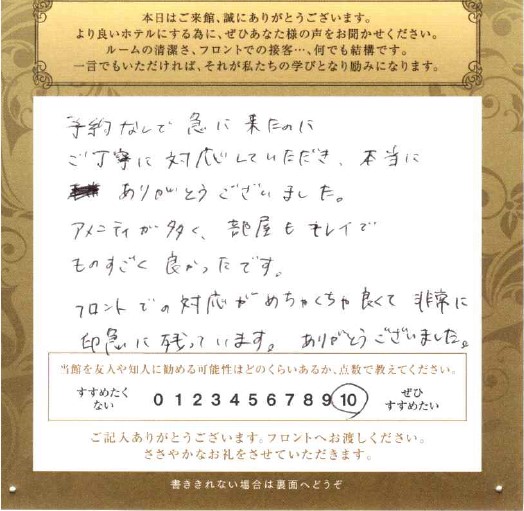 本日はご来館、誠にありがとうございます。
より良いホテルにする為に、ぜひあなた様の声をお聞かせください。
ルームの清潔さ、フロントでの接客…、何でも結構です。
一言でもいただければ、それが私たちの学びとなり励みになります。
予約なしで 急に来たのに
ご丁寧に対応していただき、本当に
ありがとうございました。
アメニティが多く、部屋もキレイで
ものすごく良かったです。
フロントでの対応がめちゃくちゃ良くて 非常に
印急に残っています。 ありがとうございました。
当館を友人や知人に勧める可能性はどのくらいあるか、点数で教えてください。
すすめたくない 0 1 2 3 4 5 6 7 8 9 10 ぜひすすめたい
ご記入ありがとうございます。フロントへお渡しください。
ささやかなお礼をさせていただきます。
書ききれない場合は裏面へどうぞ